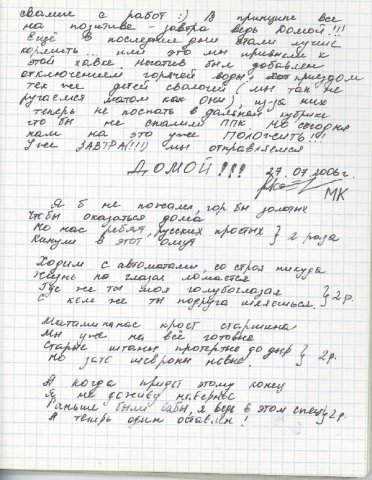 свалим с работ :) В принципе все
на позитиве – завтра ведь Домой!!!
Ещё в последние дни стали лучше
кормить ... или это мы привыкли к
этой хавке. Негатив был добавлен
отключением горячей воды, приездом
тех же детей сволочей (мы так не
ругаемся матом как они), из-за них
теперь не поспать в дальней кубрике
что бы не спалили ППК. Но сегодня
нам на это уже ПОЛОЖИТЬ!!!
Уже ЗАВТРА(!!!) мы отправляемся
ДОМОЙ!!!
27.07.2006г.
МК
Я б не пожалел, гор бы золотых
Чтобы оказаться дома
Но нас ребят, русских простых } 2 раза
Кинули в этот омут
Ходим с автоматами, со строя никуда
Жизнь на глазах ломается
Где же ты моя голубоглазая } 2р.
С кем же ты подруга шляешься.
Матами нас кроет старшина
Мы уже на всё готовы
Старые штаны протертые до дыр } 2р.
Но зато шевроны новые.
А когда придет этому конец
Я не доживу наверное
Раньше были бабы, я ведь в этом спец } 2р.
А теперь один остался!